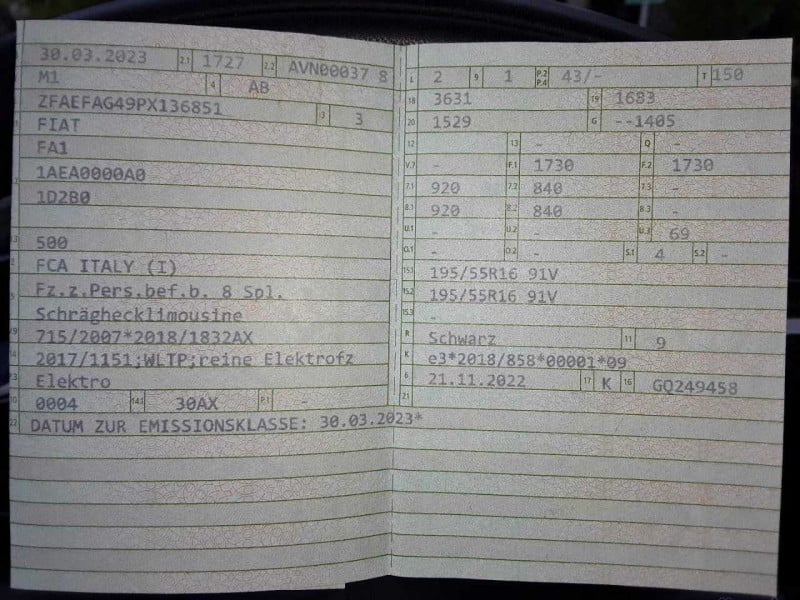 30.03.2023 2.1 1727 2.2 AVN00037 8
M1 4 AB
ZFAEFAG49PX136851 3 3
FIAT
FA1
1AEA0000A0
1D2B0
500
FCA ITALY (I)
Fz.z.Pers.bef.b. 8 Spl.
Schräghecklimousine
715/2007*2018/1832AX
2017/1151;WLTP;reine Elektrofz
Elektro
10 0004 14.1 30AX P.1 -
22 DATUM ZUR EMISSIONSKLASSE: 30.03.2023*
L 2 9 1 P.2 P.4 43/- T 150
18 3631 19 1683
20 1529 G --1405
12 - 13 - Q -
V.7 - F.1 1730 F.2 1730
7.1 920 7.2 840 7.3 -
8.1 920 8.2 840 8.3 -
U.1 - U.2 - U.3 69
O.1 - O.2 - S.1 4 S.2 -
15.1 195/55R16 91V
15.2 195/55R16 91V
15.3 -
R Schwarz 11 9
K e3*2018/858*00001*09
6 21.11.2022 17 K 16 GQ249458
21